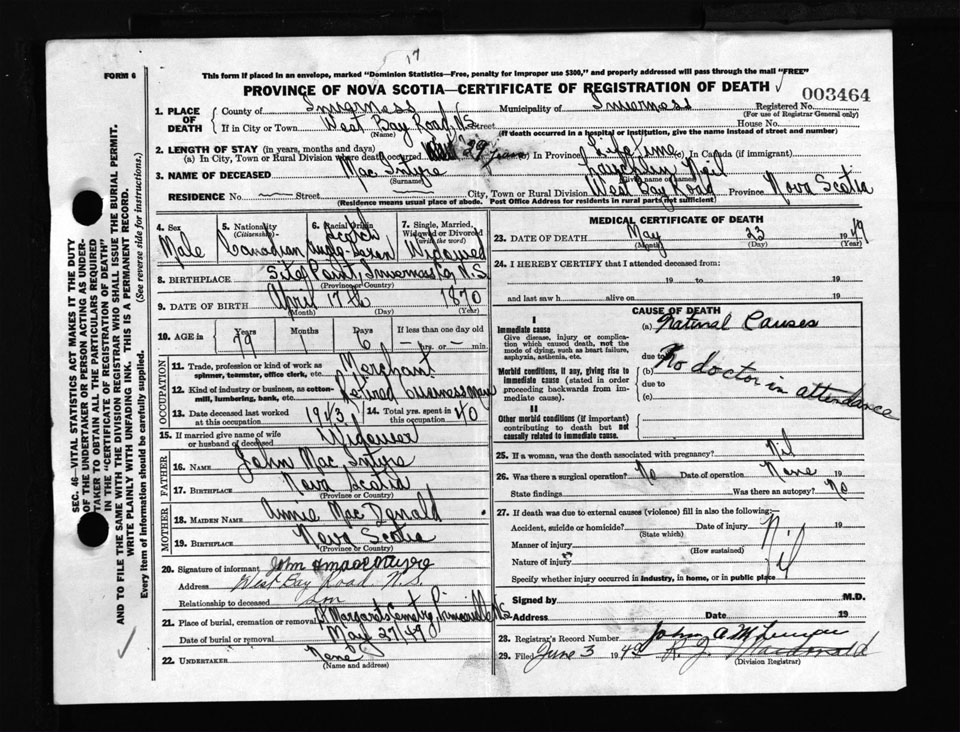 17
FORM 6
This form if placed in an envelope, marked "Dominion Statistics—Free, penalty for improper use $300," and properly addressed will pass through the mail "FREE"
PROVINCE OF NOVA SCOTIA—CERTIFICATE OF REGISTRATION OF DEATH
003464
1. PLACE OF DEATH
County of Inverness Municipality of Inverness Registered No.
(For use of Registrar General only)
If in City or Town West Bay Road, N.S. Street House No.
(Name) (If death occurred in a hospital or institution, give the name instead of street and number)
2. LENGTH OF STAY (in years, months and days)
(a) In City, Town or Rural Division were death occurred 29 years (b) In Province Lifetime (c) In Canada (if immigrant)
3. NAME OF DECEASED Mac Intyre Neil
(Surname) (Given name or names)
RESIDENCE No. Street City, Town or Rural Division West Bay Road Province Nova Scotia
(Residence means usual place of abode. Post Office Address for residents in rural parts not sufficient)
4. Sex Male
5. Nationality (Citizenship) Canadian
6. Racial Origin Scotch
7. Single, Married, Widowed or Divorced (write the word) Widowed
8. BIRTHPLACE Inverness Co, N.S.
(Province or Country)
9. DATE OF BIRTH April 17th 1870
(Month) (Day) (Year)
10. AGE in Years Months Days If less than one day old
79 1 6 — hrs. or — min.
OCCUPATION
11. Trade, profession or kind of work as spinner, teamster, office clerk, etc. Merchant
12. Kind of industry or business, as cotton-mill, lumbering, bank, etc. Retired businessman
13. Date deceased last worked at this occupation 1943 14. Total yrs. spent in this occupation 40
15. If married give name of wife or husband of deceased Widower
FATHER
16. NAME John Mac Intyre
17. BIRTHPLACE Nova Scotia
(Province or Country)
MOTHER
18. MAIDEN NAME Annie Mac Donald
19. BIRTHPLACE Nova Scotia
(Province or Country)
20. Signature of informant John
Address West Bay Road N.S.
Relationship to deceased son
21. Place of burial, cremation or removal St Margarets Cemetry, N.S
Date of burial or removal May 27/49
22. UNDERTAKER None
(Name and address)
MEDICAL CERTIFICATE OF DEATH
23. DATE OF DEATH May 23 1949
(Month) (Day) (Year)
24. I HEREBY CERTIFY that I attended deceased from:
19 to 19
and last saw h alive on 19
CAUSE OF DEATH
I
Immediate cause (a) Natural Causes
Give disease, injury or complication which caused death, not the mode of dying, such as heart failure, asphyxia, asthenia, etc.
due to
Morbid conditions, if any, giving rise to immediate cause (stated in order proceeding backwards from immediate cause).
(b) No doctor in attendance
due to
(c)
II
Other morbid conditions (if important) contributing to death but not causally related to immediate cause.
25. If a woman, was the death associated with pregnancy? Nil
26. Was there a surgical operation? No Date of operation None 19
State findings Was there an autopsy? No
27. If death was due to external causes (violence) fill in also the following:—
Accident, suicide or homicide? Date of injury 19
(State which)
Manner of injury Nil
(How sustained)
Nature of injury
Specify whether injury occurred in industry, in home, or in public place
Signed by M.D.
Address Date 19
28. Registrar's Record Number John A.
29. Filed June 3 1949 R. J. Macdonald
(Division Registrar)
SEC. 46—VITAL STATISTICS ACT MAKES IT THE DUTY
OF THE UNDERTAKER OR PERSON ACTING AS UNDERTAKER TO OBTAIN ALL THE PARTICULARS REQUIRED
IN THE "CERTIFICATE OF REGISTRATION OF DEATH"
AND TO FILE THE SAME WITH THE DIVISION REGISTRAR WHO SHALL ISSUE THE BURIAL PERMIT.
WRITE PLAINLY WITH UNFADING INK. THIS IS A PERMANENT RECORD.
Every item of information should be carefully supplied. (See reverse side for instructions.)